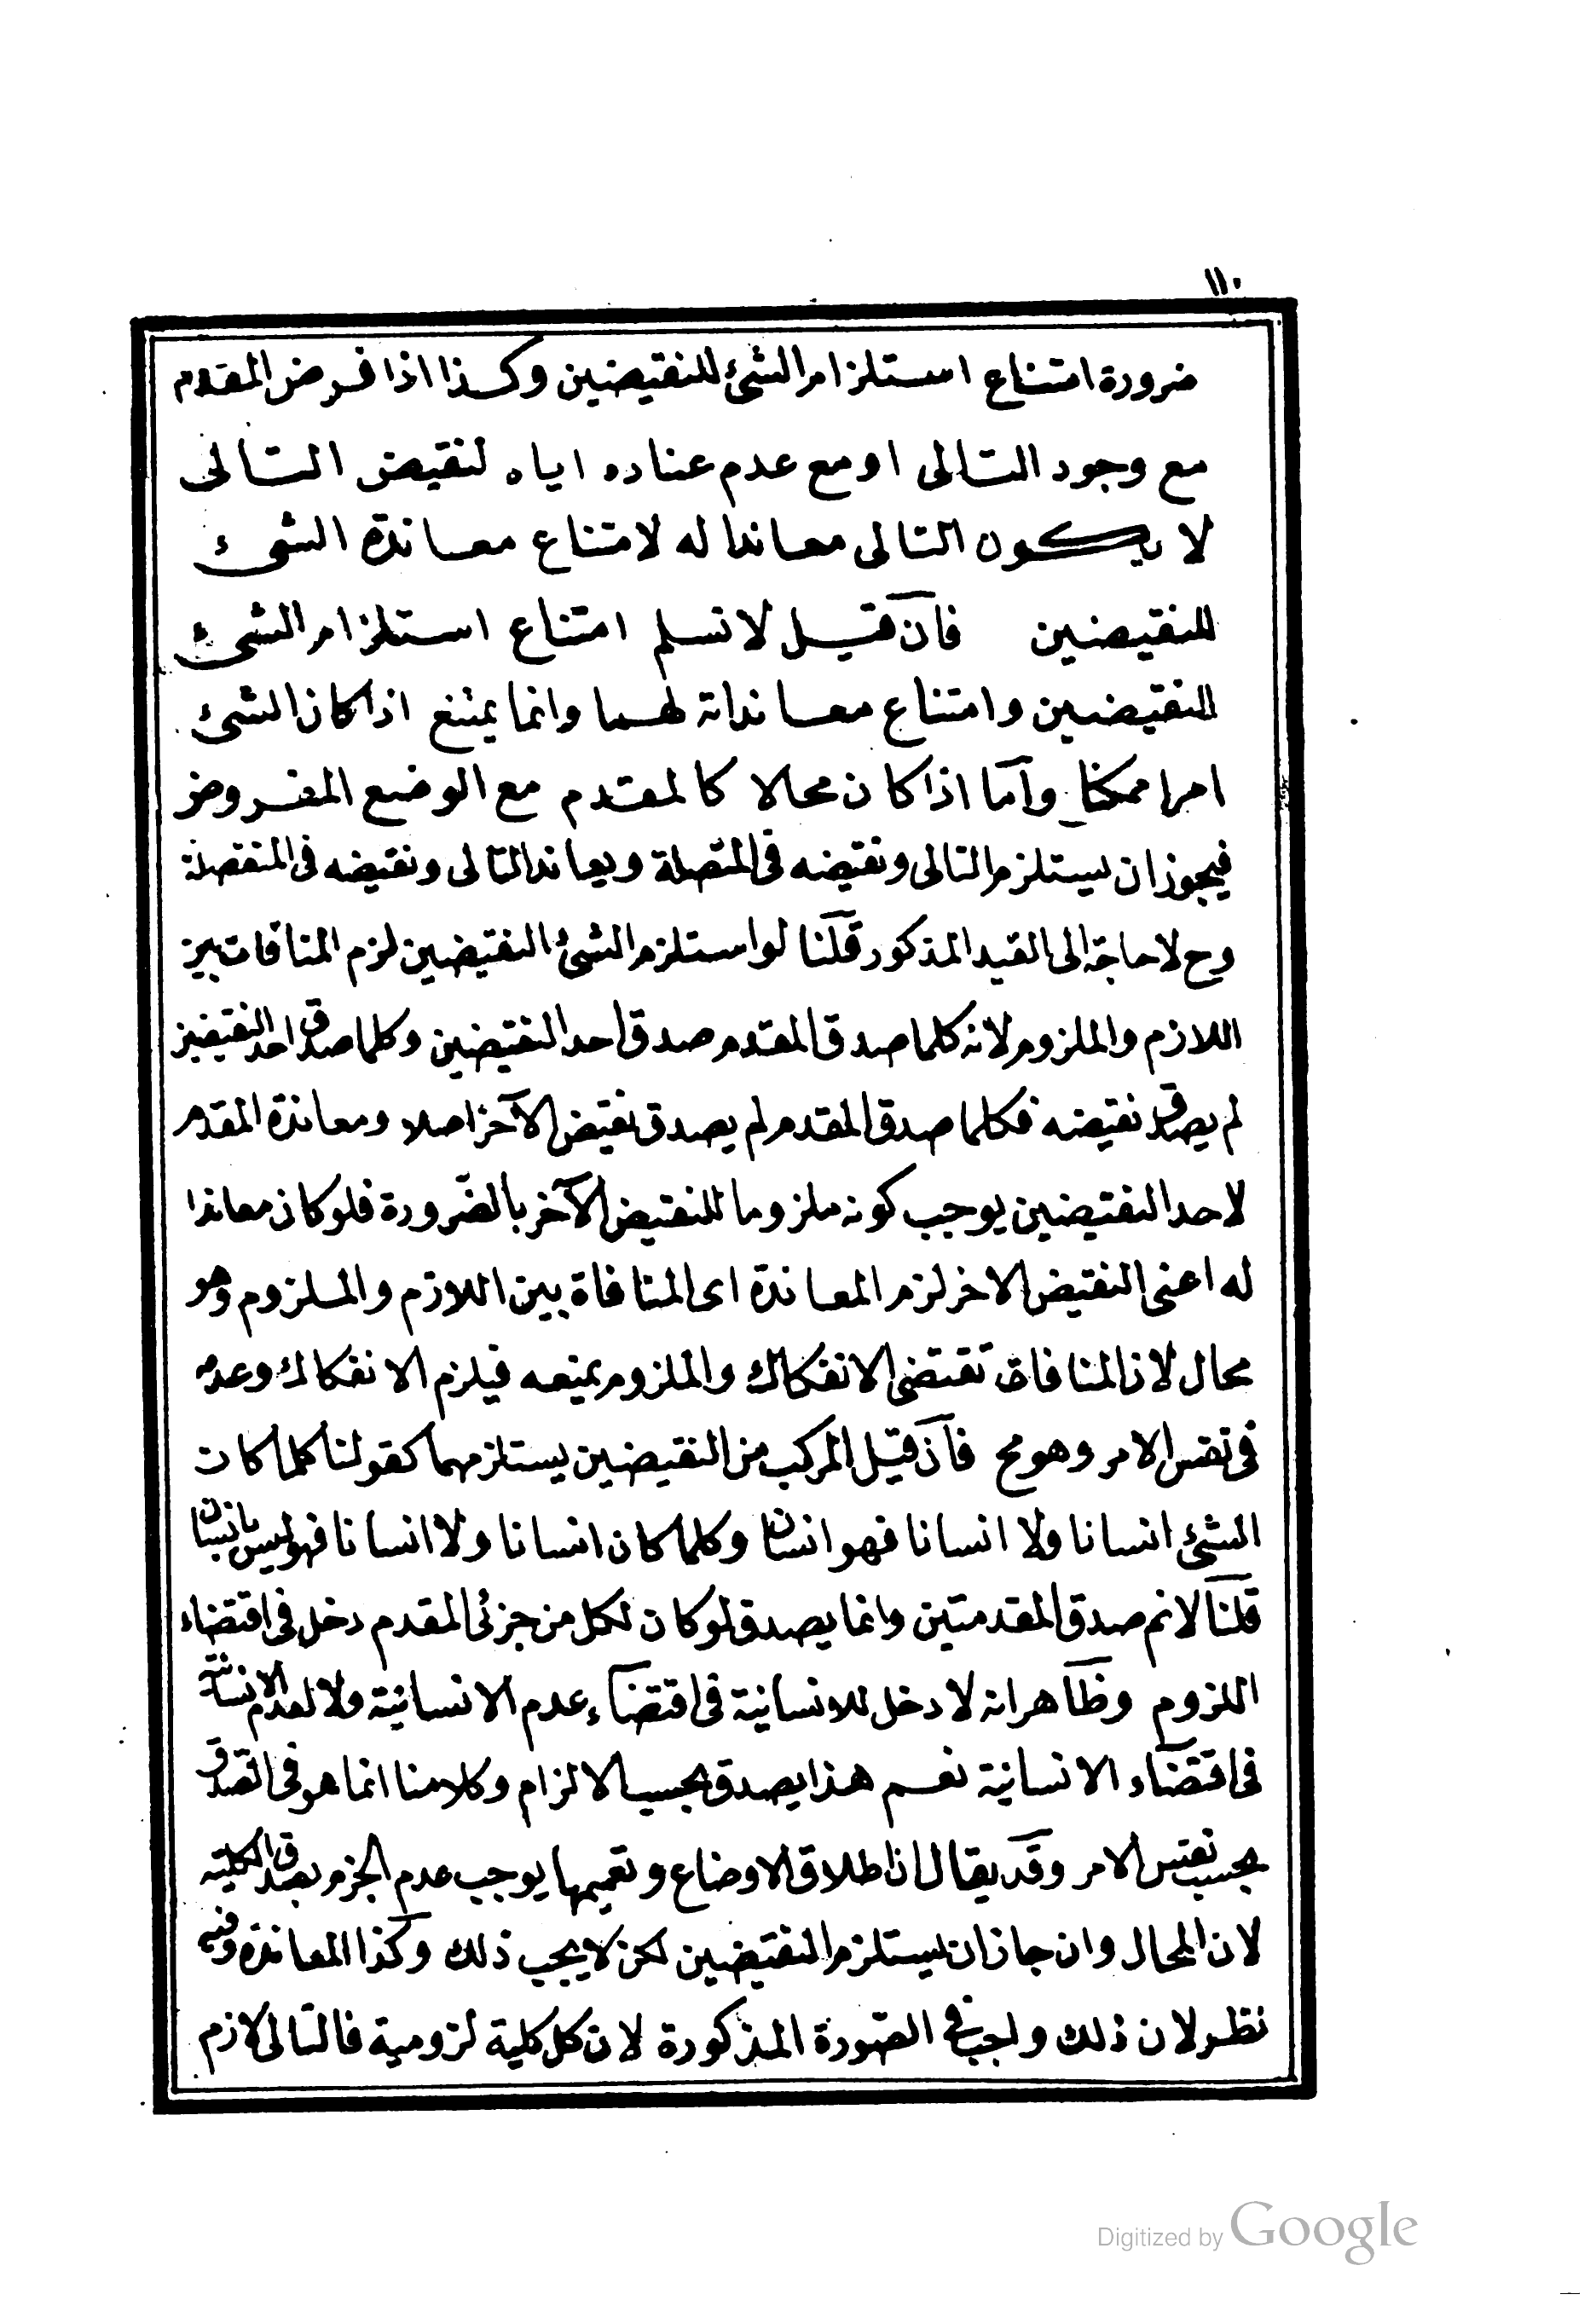 ١١٠
ضرورة امتناع استلزام الشئ للنقيضين وكذا اذا فرض المقدم
مع وجود التالى او مع عدم عناده اياه لنقيض التالى
لا يكون التالى معاندا له لامتناع معاندة الشئ
للنقيضين فان قيل لا نسلم امتناع استلزام الشئ
للنقيضين وامتناع معاندانه لهما وانما يمتنع اذا كان الشئ
امرا ممكنا واما اذا كان محالا كالمقدم مع الوضع المفروض
فيجوز ان يستلزم التالى ونقيضه فى المتصلة ويعاند التالى ونقيضه فى المنفصلة
وح لا حاجة الى القيد المذكور قلنا لو استلزم الشئ النقيضين لزم المنافات بين
اللازم والملزوم لانه كلما صدق المقدم صدق احد النقيضين وكلما صدق احد النقيضين
لم يصدق نقيضه فكلما صدق المقدم لم يصدق نقيض الآخر اصلا ومعاندة المقدم
لاحد النقيضين يوجب كونه ملزوما للنقيض الآخر بالضرورة فلو كان معاندا
له اعنى النقيض الاخر لزم المعاندة اى المنافاة بين اللازم والملزوم وهو
محال لان المنافاة تقتضى الانفكاك والملزوم يمنعه فيلزم الانفكاك وعدمه
فى نفس الامر وهو مح فان قيل المركب من النقيضين يستلزمهما كقولنا كلما كان
الشئ انسانا ولا انسانا فهو انسان وكلما كان انسانا ولا انسانا فهو ليس بانسان
قلنا لانم صدق المقدمتين وانما يصدق لو كان لكل من جزئى المقدم دخل فى اقتضاء
اللزوم وظاهر انه لا دخل للانسانية فى اقتضاء عدم الانسانية ولا لعدم الانسانية
فى اقتضاء الانسانية نعم هذا يصدق بحسب الالزام وكلامنا انما هو فى الصدق
بحسب نفس الامر وقد يقال ان اطلاق الاوضاع وتعميمها يوجب عدم الجزم بصدق الكلية
لان المحال وان جاز ان يستلزم النقيضين لكن لا يجب ذلك وكذا المعاندة وفيه
نظر لان ذلك واجب فى الصورة المذكورة لان كل كلية لزومية فالتالى لازم
Digitized by Google